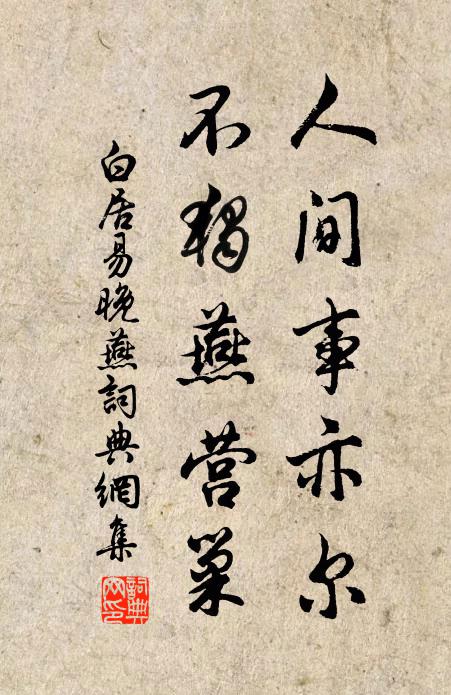 人间事亦尔
不独燕营巢
白居易晚燕詞典網集
詞典网印